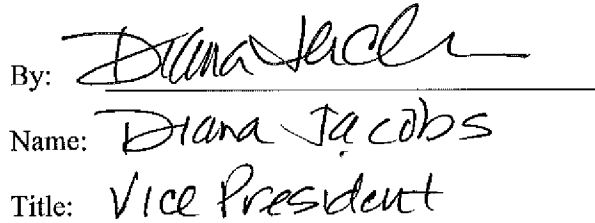 By: Diana Jacobs
Name: Diana Jacobs
Title: Vice President